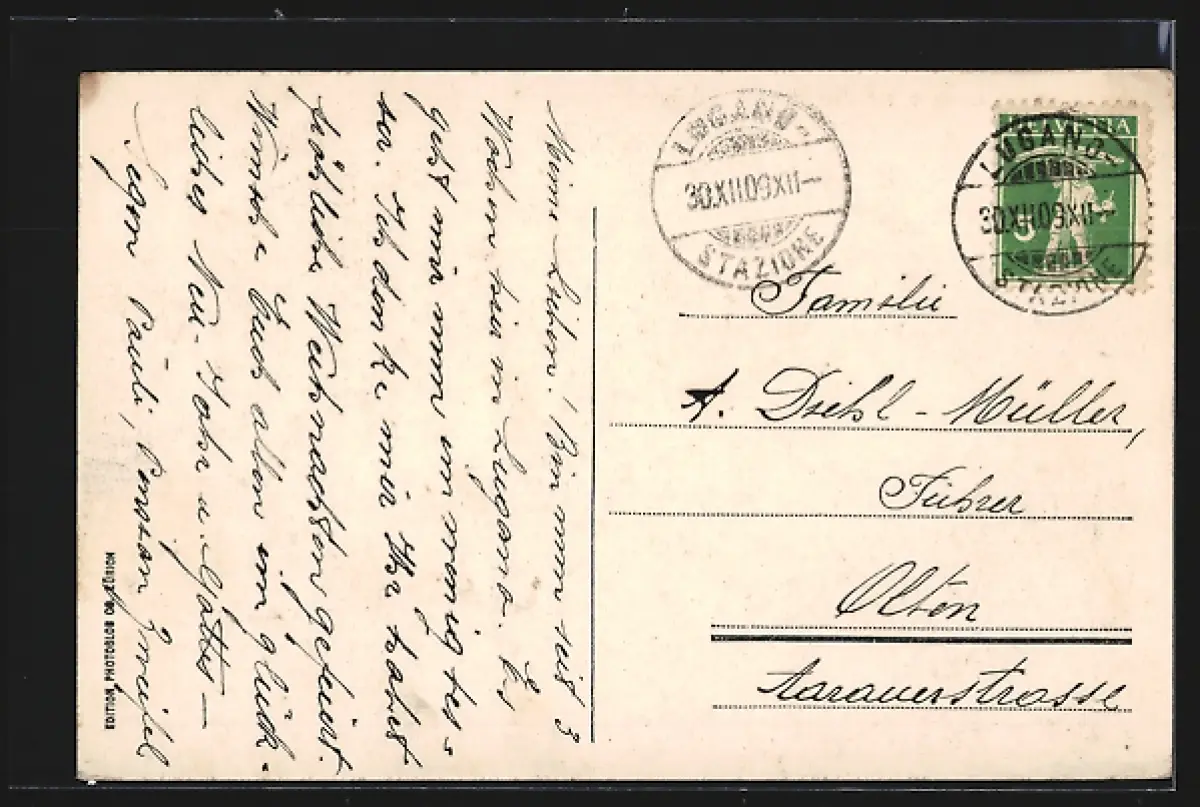 Meine Lieben! Bin nun seit 3
Wochen hier in Lugano. Es
geht mir nun ein wenig bes-
ser. Ich denke mir Ihr habet
fröhliche Weihnachten gefeiert.
Wünsche Euch allen ein glück-
liches Neu-Jahr u. Gottes –
Segen Pauli,
EDITION, PHOTOGLOB CO., ZÜRICH
LUGANO
30.XII.09.XII–
STAZIONE
HELVETIA
5
LUGANO
30.XII.09.XII–
STAZIONE
Familie
A. Diehl-Müller,
Führer
Olten
Aarauerstrasse